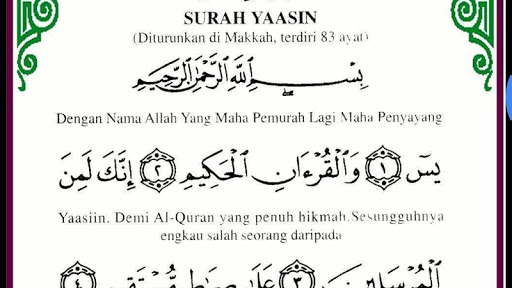 SURAH YAASIN
(Diturunkan di Makkah, terdiri 83 ayat)
بِسْمِ اللَّهِ الرَّحْمَٰنِ الرَّحِيمِ
Dengan Nama Allah Yang Maha Pemurah Lagi Maha Penyayang
يسٓ ١ وَالْقُرْءَانِ الْحَكِيمِ ٢ إِنَّكَ لَمِنَ
Yaasiin. Demi Al-Quran yang penuh hikmah.Sesungguhnya
engkau salah seorang daripada
الْمُرْسَلِينَ ٣ عَلَىٰ صِرَاطٍ مُّسْتَقِيمٍ ٤